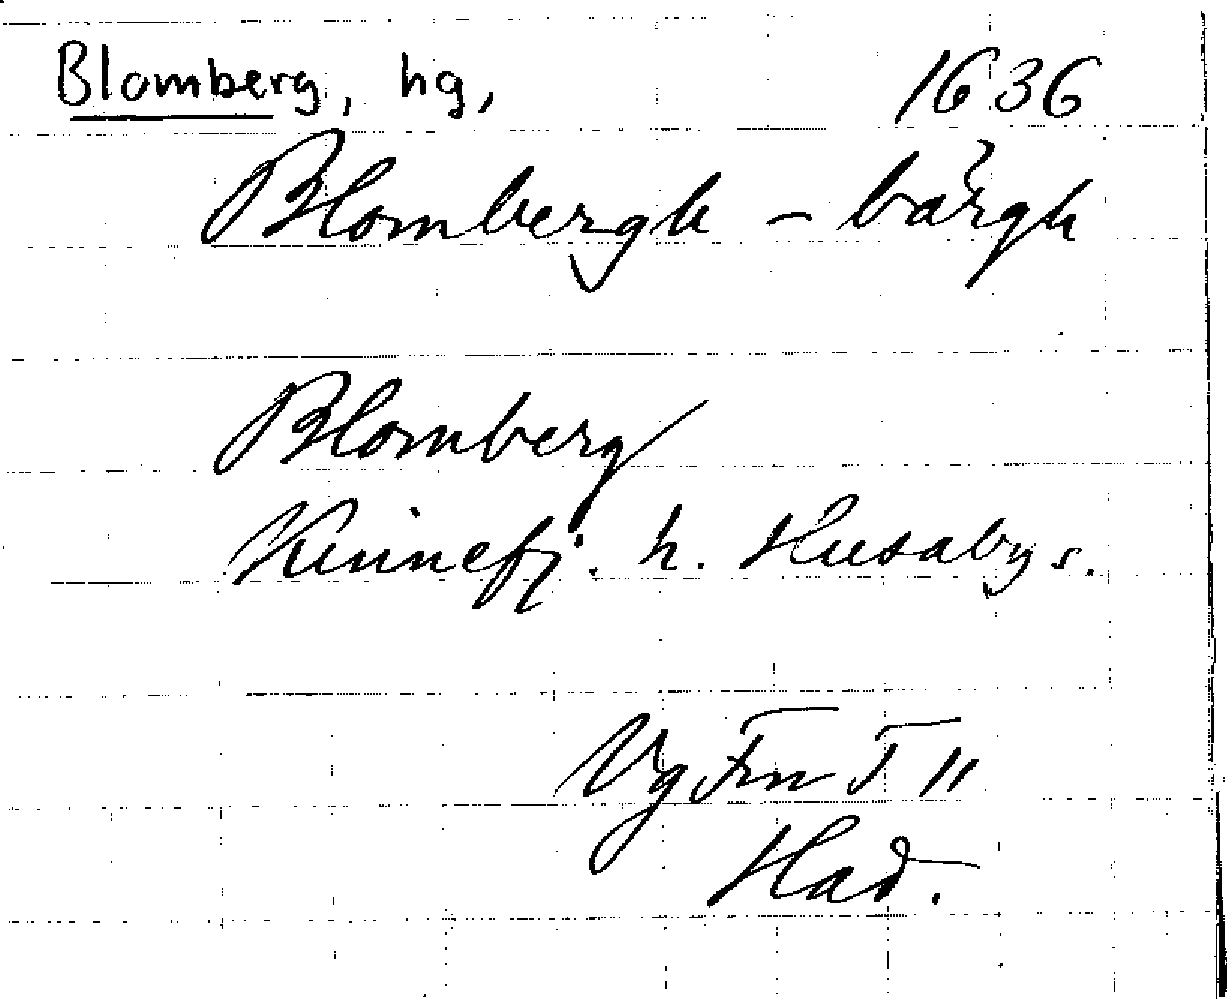 Blomberg, hg, 1636
Blombergh - bärgh
Blomberg
Kinnefj. h. Husaby s.
Vg Frn T 11
Had.